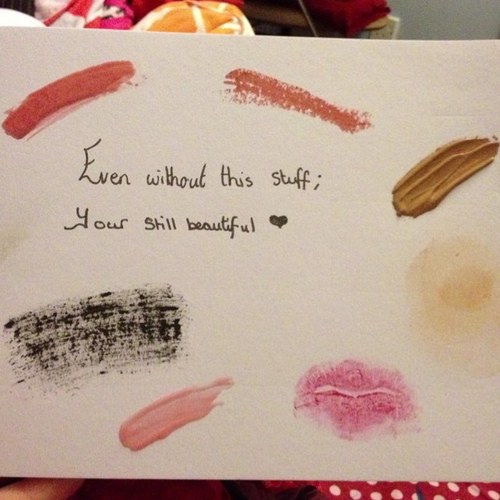 Even without this stuff;
Your still beautiful ♥